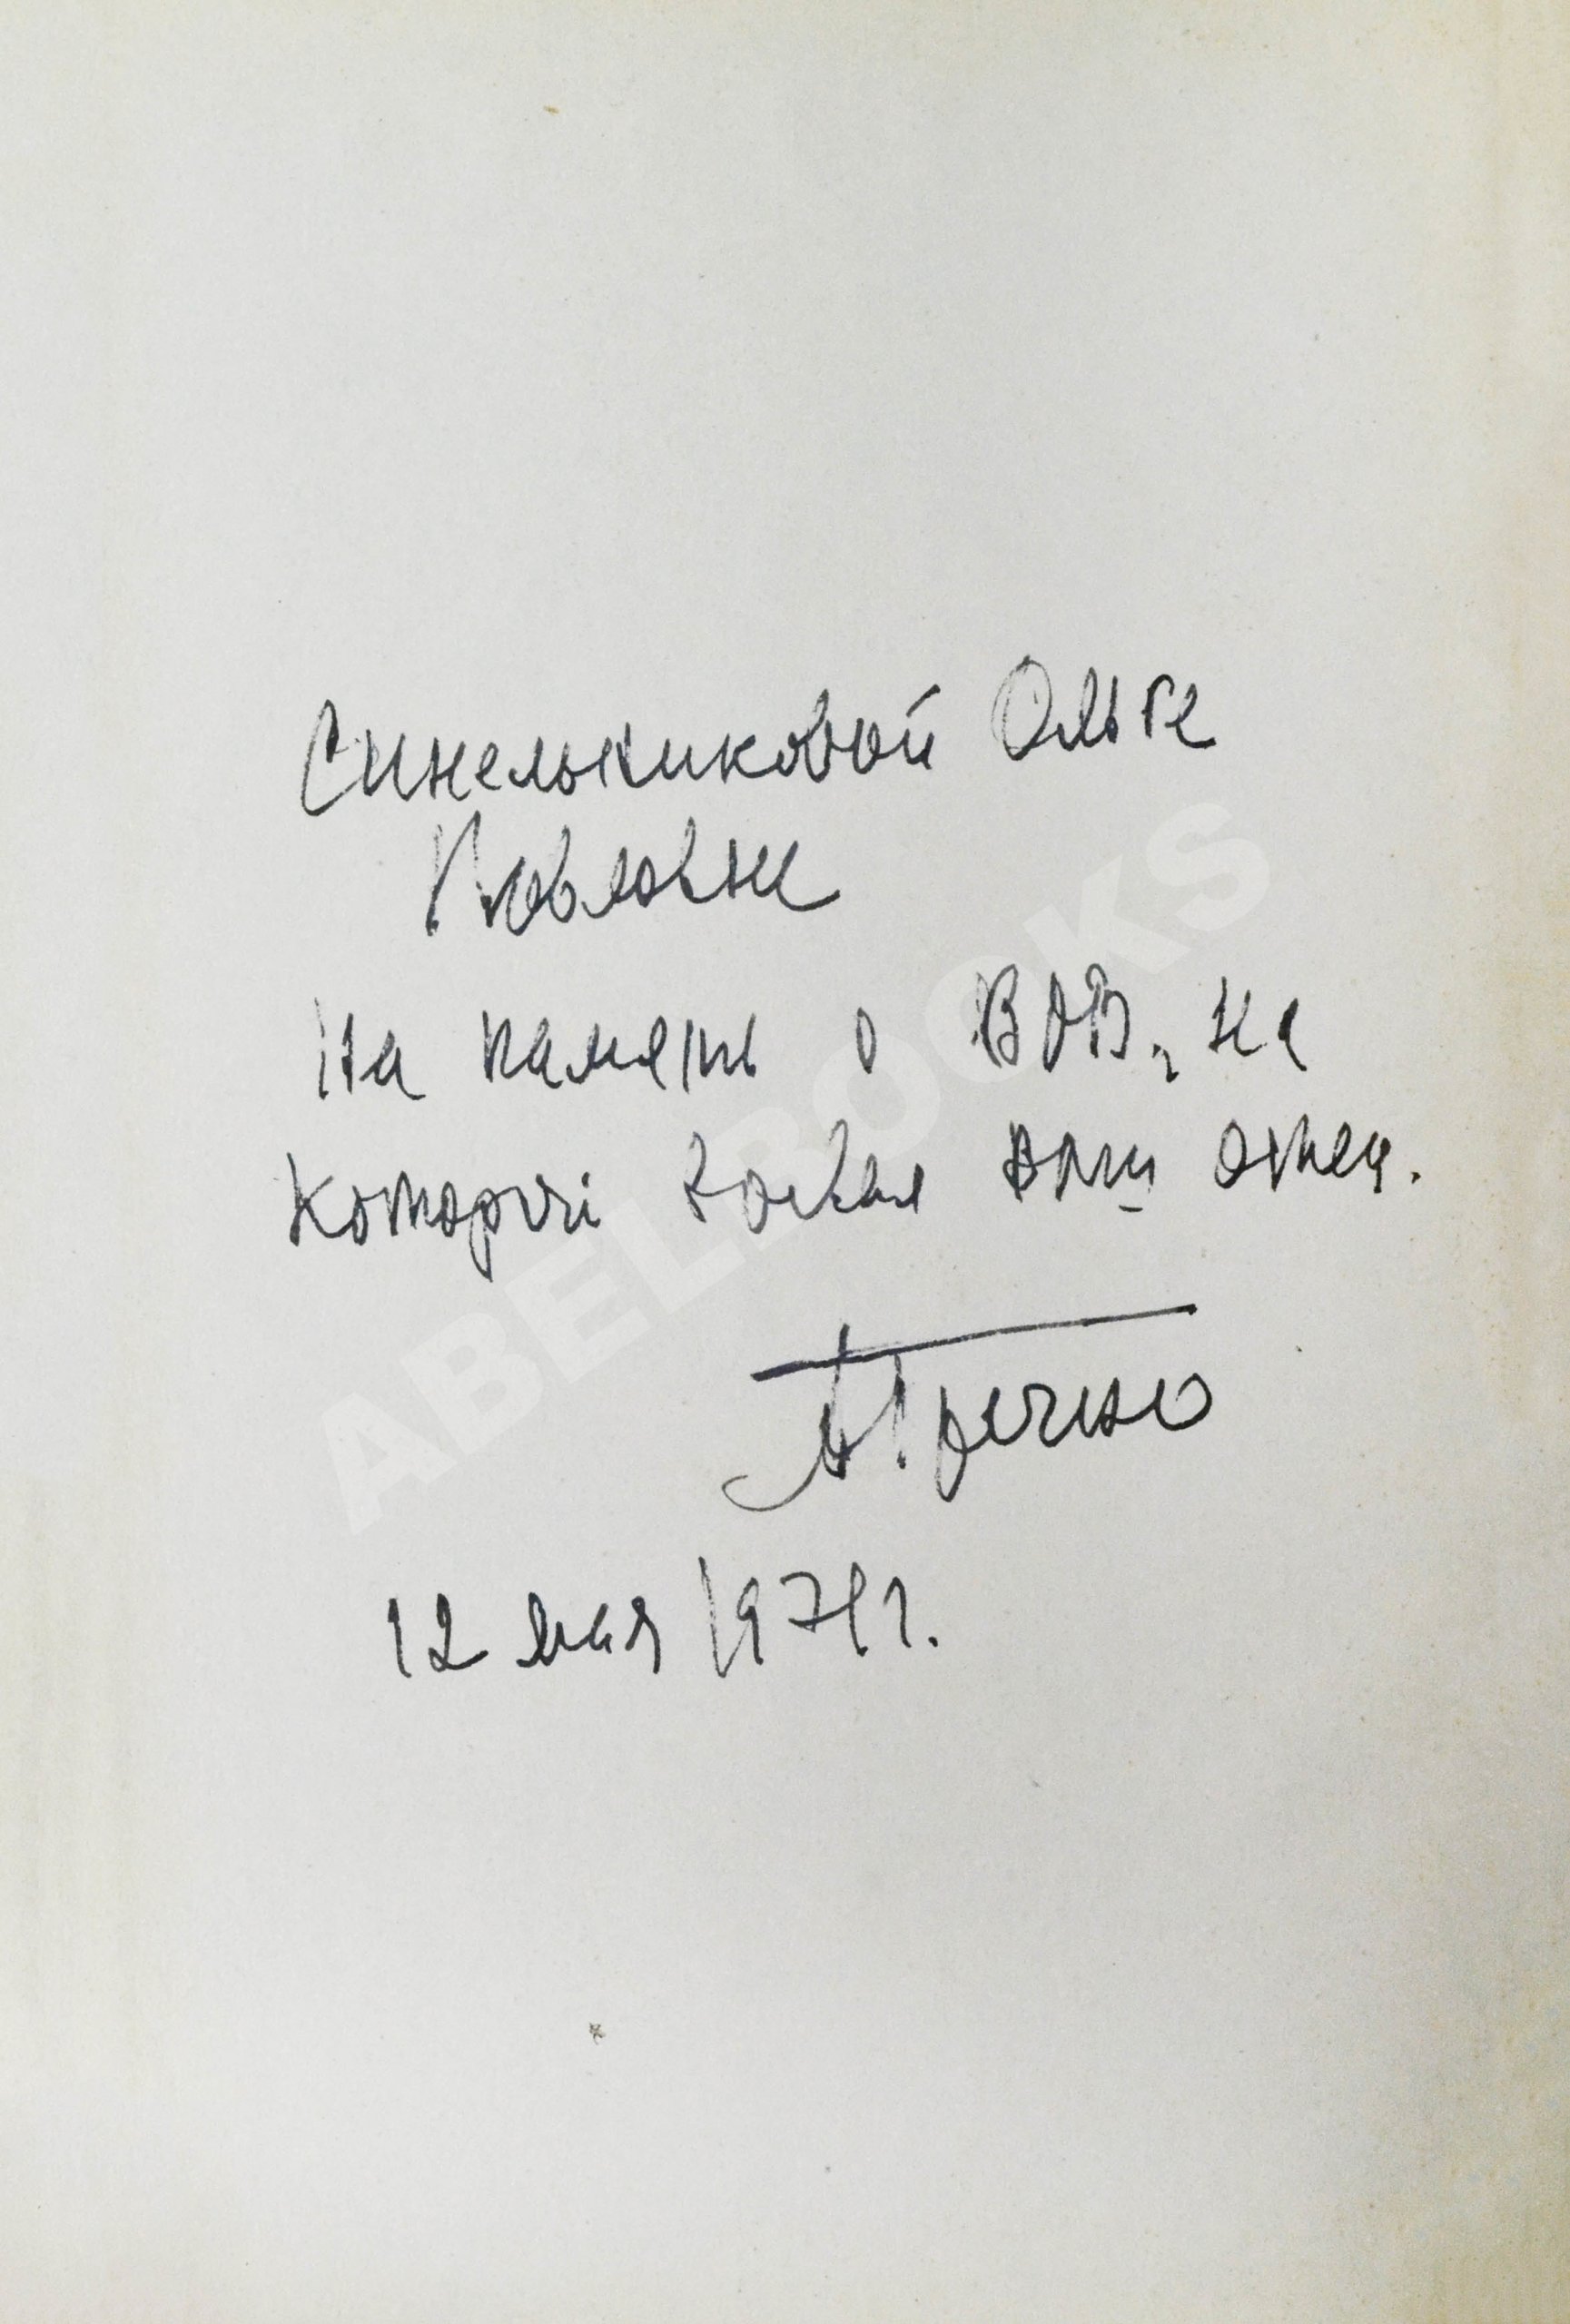 Синельниковой Ольге
Павловне
На память о ВОВ, на
которой воевал ваш отец.
АГречко
12 мая 1971г.
ABELBOOKS